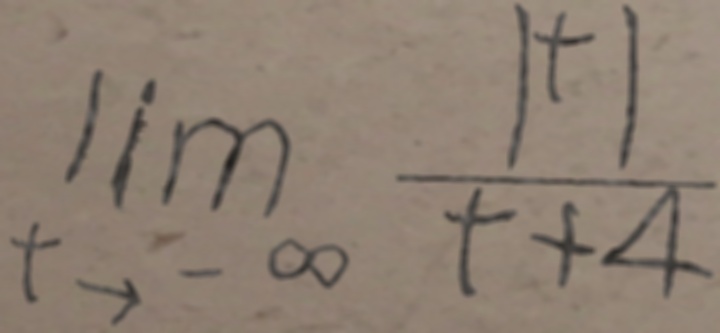 lim |t|
t→-∞ t+4